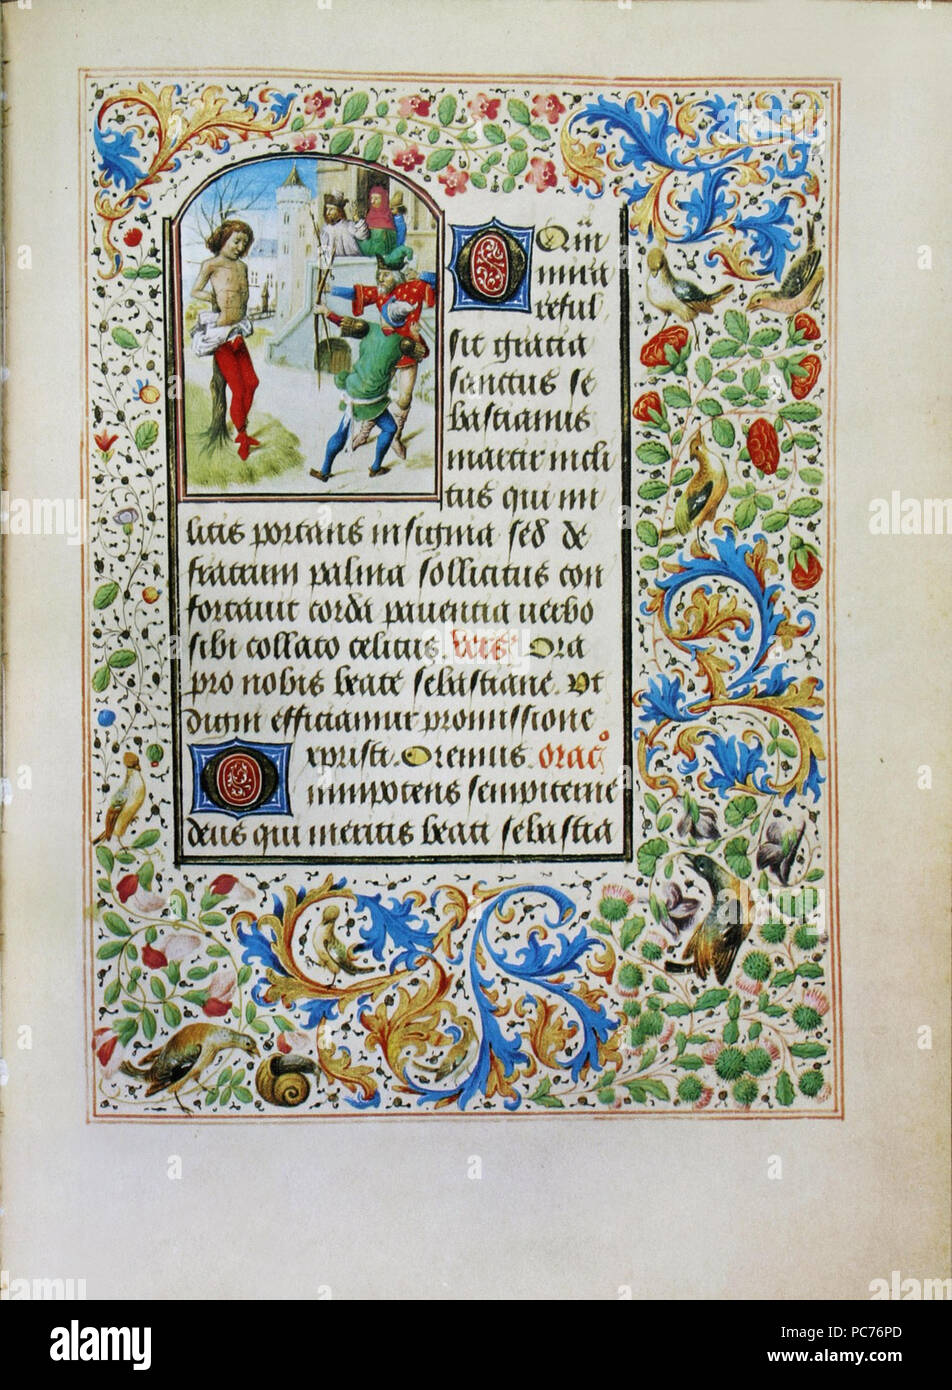 O Quā
mira
reful
sit gracia
sanctus se
bastianus
martir incli
tus qui mi
litis portans insignia sed de
fratrum palma sollicitus con
fortavit corda paventia verbo
sibi collato celitus. Vers9 Ora
pro nobis beate sebastiane. Vt
digni efficiamur promissione
xpristi. Oremus. oraco
Omnipotens sempiterne
deus qui meritis beati sebastia
alamy stock photo
PC76PD
www.alamy.com